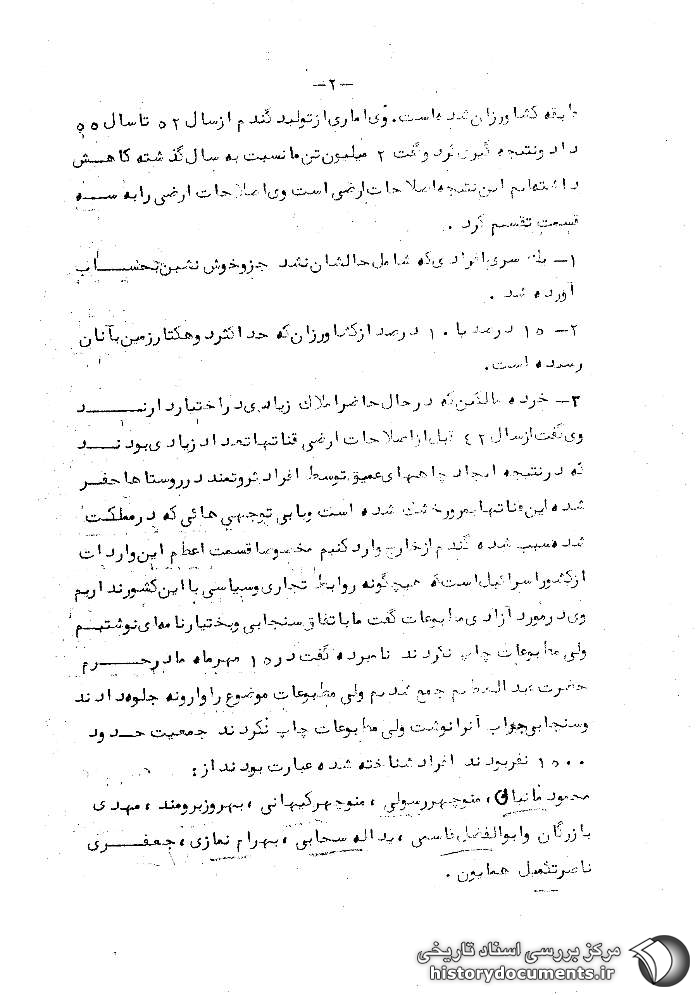 -۲-
طبقه کشاورزان شده است. وی اماری از تولید گندم از سال ۵۲ تا سال ۵۵
داد و نتیجه گیری کرد و گفت ۲ میلیون تن ما نسبت به سال گذشته کاهش
داشته‌ایم این نتیجه اصلاحات ارضی است وی اصلاحات ارضی را به سه
قسمت تقسیم کرد .
۱- یک سری افرادی که شامل حالشان نشد جزو خوش نشین بحساب
آورده شد .
۲- ۱۵ درصد یا ۱۰ درصد از کشاورزان که حداکثر دو هکتار زمین بآنان
رسیده است.
۳- خرده مالکین که در حال حاضر املاک زیادی در اختیار دارند
وی گفت از سال ۴۲ قبل از اصلاحات ارضی قناتها تعداد زیادی بودند
که در نتیجه ایجاد چاههای عمیق توسط افراد ثروتمند در روستاها حفر
شده این قناتها بمرور خشک شده است و با بی توجهی هائی که در مملکت
شده سبب شده گندم از خارج وارد کنیم مخصوصا قسمت اعظم این واردات
از کشور اسرائیل است که هیچگونه روابط تجاری و سیاسی با این کشور نداریم
وی در مورد آزادی مطبوعات گفت ما با تفاق سنجابی و بختیار نامه ای نوشتیم
ولی مطبوعات چاپ نکردند نامبرده گفت در ۱۵ مهرماه ما در حرم
حضرت عبدالعظیم جمع شدیم ولی مطبوعات موضوع را وارونه جلوه دادند
و سنجابی جواب آنرا نوشت ولی مطبوعات چاپ نکردند جمعیت حدود
۱۵۰۰ نفر بودند افراد شناخته شده عبارت بودند از :
محمود مانیان ، منوچهر رسولی ، منوچهر کیهانی ، بهروز برومند ، مهدی
بازرگان و ابوالفضل قاسمی ، یداله سحابی ، بهرام نمازی ، جعفری
ناصر تکمیل همایون .
مرکز بررسی اسناد تاریخی
historydocuments.ir